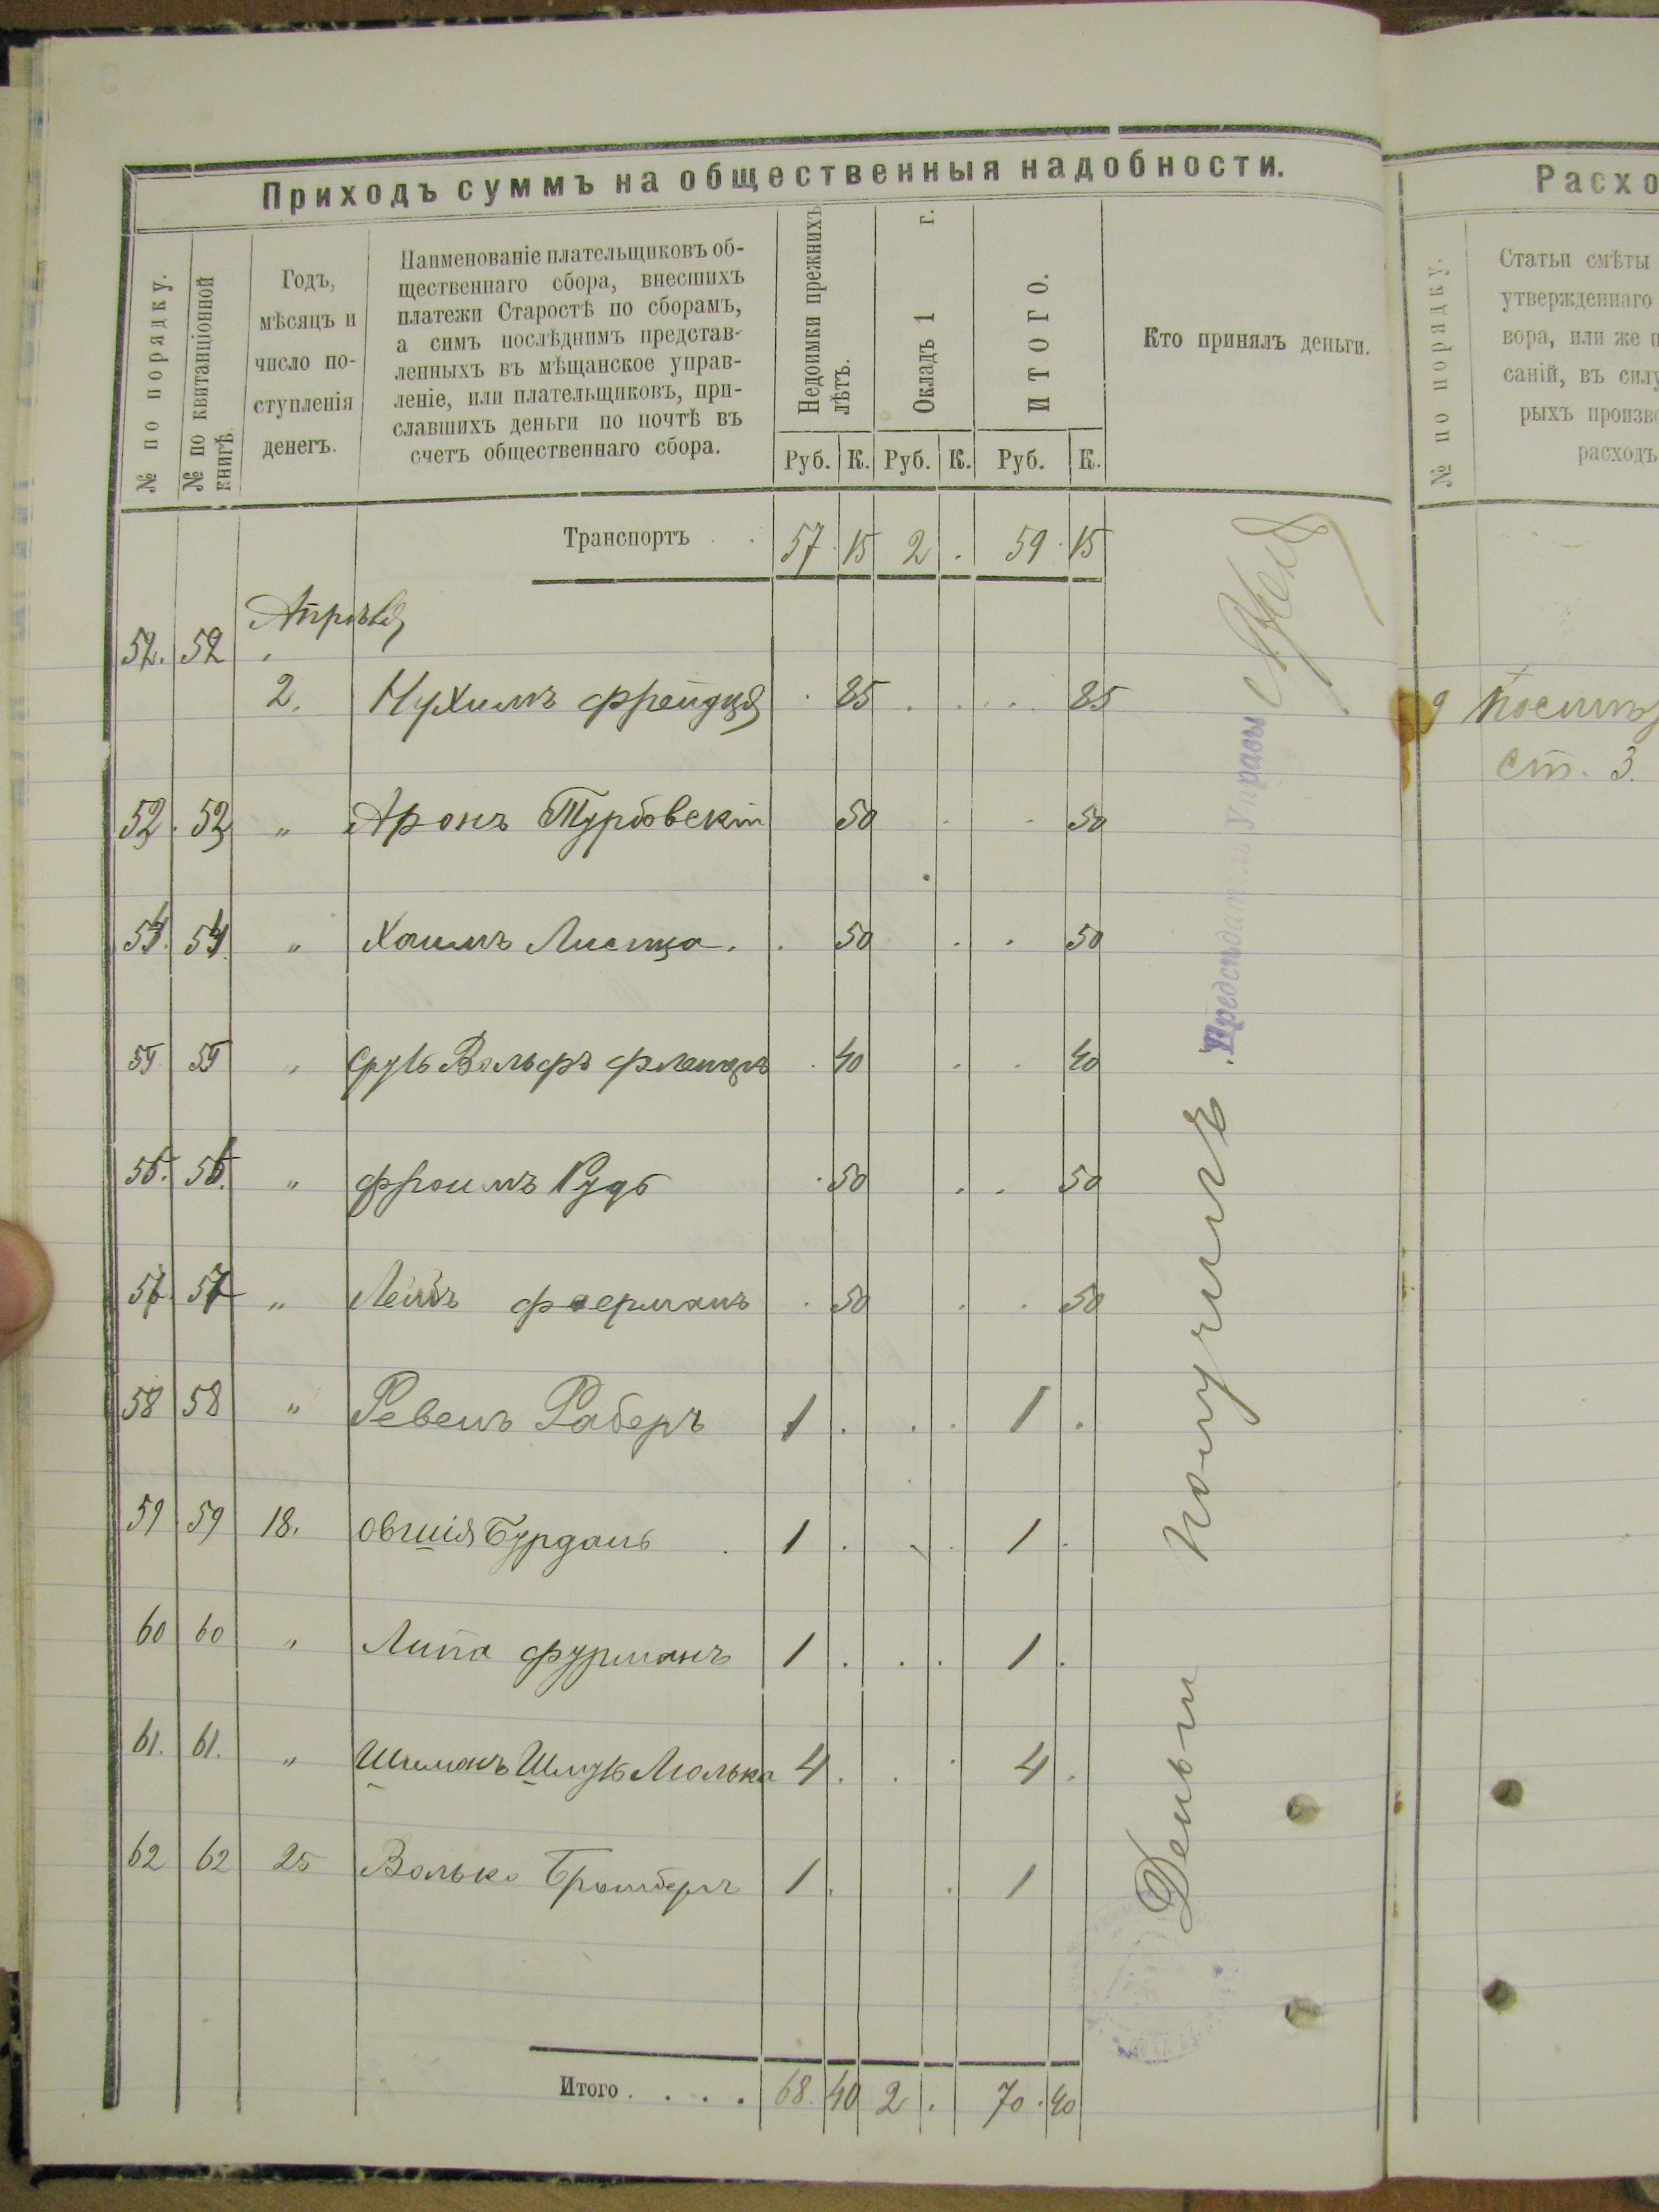 Приходъ суммъ на общественныя надобности.
№ по порядку.
№ по квитанціонной книгѣ.
Годъ,
мѣсяцъ и
число по-
ступленія
денегъ.
Наименованіе плательщиковъ об-
щественнаго сбора, внесшихъ
платежи Старостѣ по сборамъ,
а симъ послѣднимъ представ-
ленныхъ въ мѣщанское управ-
леніе, или плательщиковъ, при-
славшихъ деньги по почтѣ въ
счетъ общественнаго сбора.
Недоимки прежнихъ
лѣтъ.
Окладъ 1 г.
ИТОГО.
Руб. К. Руб. К. Руб. К.
Кто принялъ деньги.
Транспортъ . . 57 15 2 . 59 15
Апрѣль
52. 52
2. Нухимъ 85 85
53. 53 " Аронъ Турбовскій 50 50
54. 54. " Хаимъ 50 50
55 55 " Сруль Вольфъ 40 40
56. 56. " Фроимъ Рудь 50 50
57. 57 " Лейбъ Фаерманъ 50 50
58 58 " Ревенъ Раберъ 1 . 1 .
59 59 18. Овшія Бурдань 1 . 1 .
60 60 " Липа Фурманъ 1 . 1 .
61. 61. " Шиманъ Шмуль Люлька 4 . 4 .
62 62 25 Волько 1 . 1
Итого . . . . 68. 40 2 . 70. 40
Деньги получилъ
Предсѣдатель Управы
Расхо
№ по порядку.
Статьи смѣты
утвержденнаго
вора, или же п
саній, въ силу
рыхъ произво
расходъ
9
ст. 3.